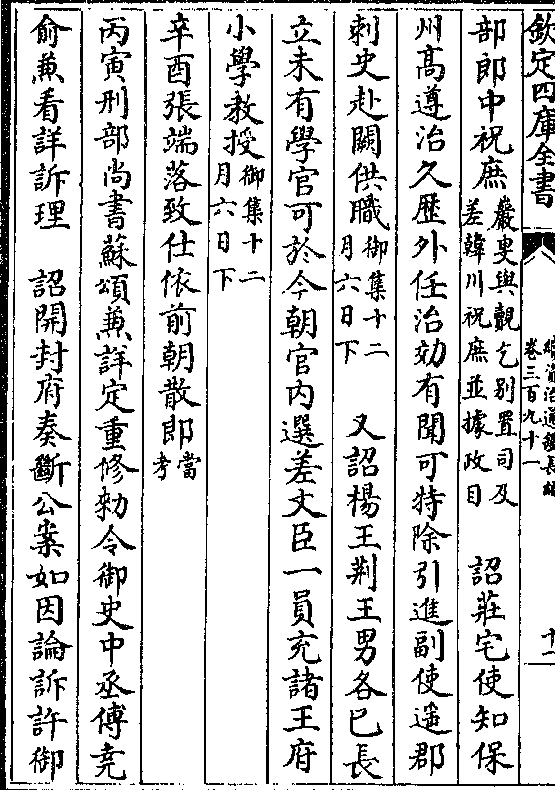 欽定四庫全書
續資治通鑑長編
卷三百九十一
十一
部郎中祝庶嚴叟與覿乞别置司及
差韓川祝庶並據政目 詔莊宅使知保
州髙遵治久歴外任治効有聞可特除引進副使遥郡
刺史赴闕供職御集十二
月六日下 又詔楊王荆王男各已長
立未有學官可於今朝官内選差文臣一員充諸王府
小學教授御集十二
月六日下
辛酉張端落致仕依前朝散郎當
考
丙寅刑部尚書蘇頌兼詳定重修勑令御史中丞傅堯
俞兼看詳訴理 詔開封府奏斷公案如因論訴許御